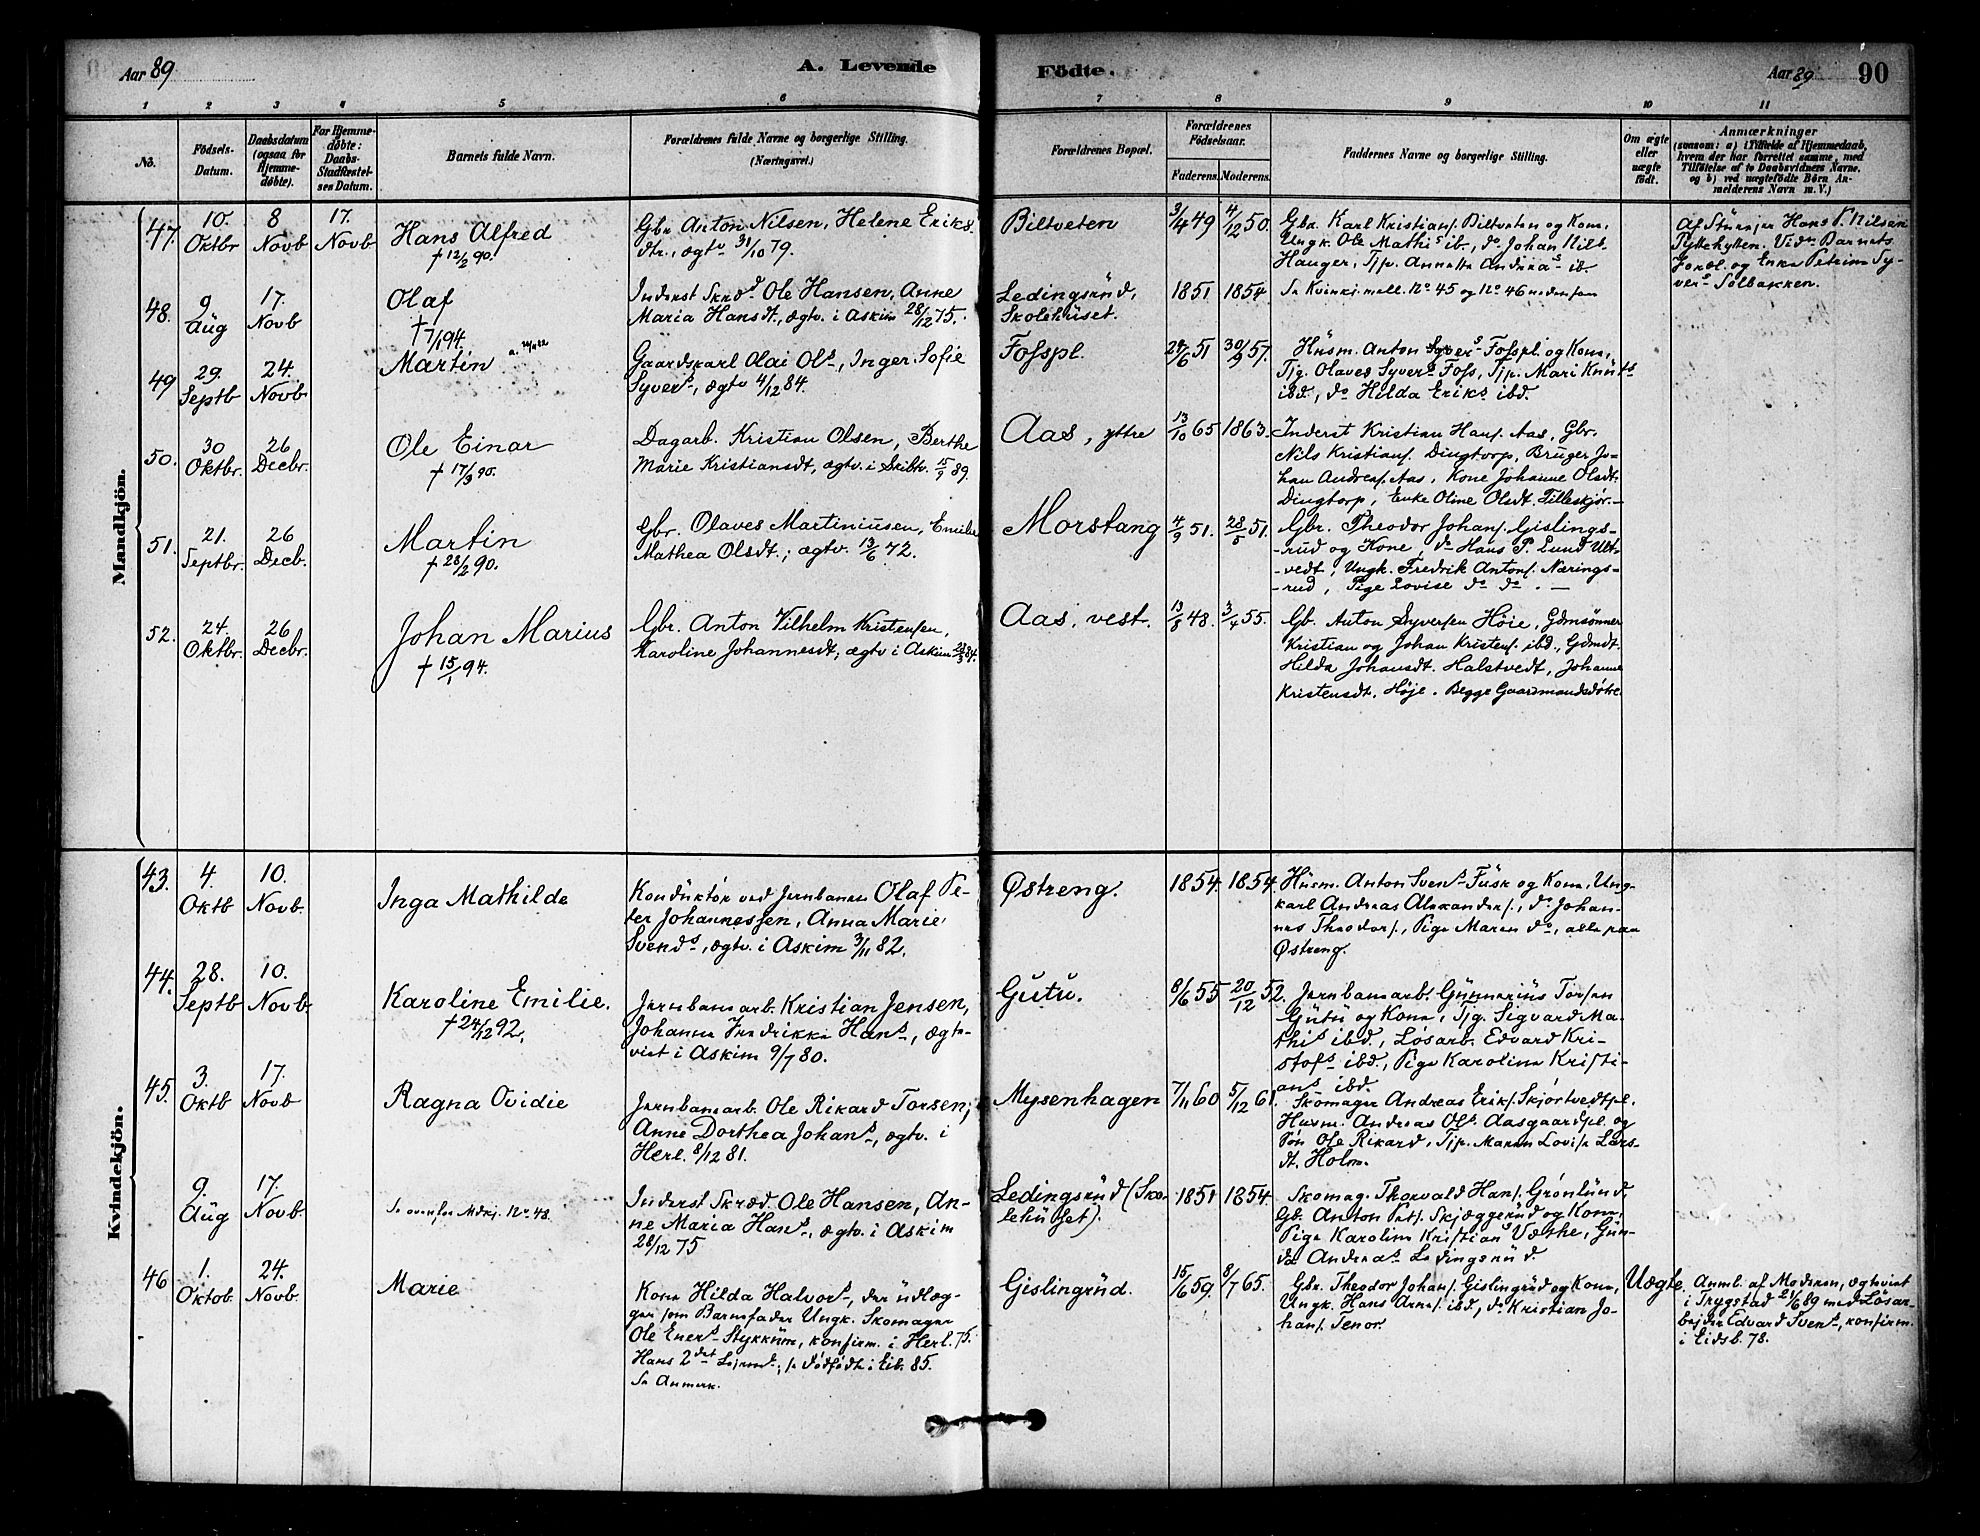 Aar 89
A. Levende
Födte.
Aar 89
90
1 2 3 4 5 6 7 8 9 10 11
No.
Födsels-
Datum.
Daabsdatum
(ogsaa for
Hjemme-
döbte).
For Hjemme-
döbte:
Daabs-
Stadfæstel-
ses Datum.
Barnets fulde Navn.
Forældrenes fulde Navne og borgerlige Stilling.
(Næringsvei.)
Forældrenes Bopæl.
Forældrenes
Födselsaar.
Faderens. Moderens.
Faddernes Navne og borgerlige Stilling.
Om ægte
eller
uægte
födt.
Anmærkninger
(saasom: a) i Tilfælde af Hjemmedaab,
hvem der har forrettet samme, med
Tilföielse af to Daabsvidners Navne.
og b) ved uægtefödte Börn An-
melderens Navn m. V.)
Mandkjön.
47.
10.
Oktbr
8
Novb
17.
Novb
Hans Alfred
† 12/2 90.
Gbr Anton Nilsen, Helene Eriks.
dtr., ægtv 31/10 79.
Biltveten
3/4 49
4/12 50.
Gbr. Karl Kristians. Biltveten og Kone,
Ungk. Ole Mathis ib., do Johan Nils.
Hauger, Tjp. Annette Andreas ib.
Af Hans P. Nilsen
Pyttehytten. Vidn. Barnets
Foræl. og Enke Petrine Sy-
vers Solbakken.
48.
9
Aug
17.
Novb
Olaf
† 7/1 94.
Inderst Skræd Ole Hansen, Anne
Maria Hansdt., ægtv. i Askim 28/12 75.
Ledingsrud,
Skolehuset.
1851
1854
Se Kvinkj. mell. No 45 og No 46 nedenfor
49
29.
Septb
24.
Novb
Martin
Gaardskarl Olai Ols, Inger Sofie
Syvers, ægtv 4/12 84.
Fosspl.
28/6 51
30/9 57.
Husm. Anton Syvers Fosspl. og Kone,
Tjg. Olaves Syvers Foss, Tjp. Mari Knuts
ibd., do Hilda Eriks ibd.
50.
30
Oktbr.
26
Decbr.
Ole Einar
† 17/3 90.
Dagarb. Kristian Olsen, Berthe
Marie Kristiansdt, ægtv. i Skibtv. 15/9 89.
Aas, ytre
13/10 65
1863.
Inderst Kristian Hans. Aas, Gbr.
Nils Kristians. Dingtorp, Bruger Jo-
han Andreas. Aas, Kone Johanne Olsdt.
Dingtorp, Enke Oline Olsdt. Tilleskjør.
51.
21.
Septbr.
26
Decb.
Martin
† 28/2 90.
Gbr. Olaves Martiniusen, Emilie
Mathea Olsdt.; ægtv. 13/6 72.
Morstang
4/9 51.
28/5 51.
Gbr. Theodor Johans. Gislings-
rud og Kone, do Hans P. Lund Ult-
vedt, Ungk. Fredrik Antons. Nærings-
rud, Pige Lovise do do. —
52.
24.
Oktbr.
26
Decbr.
Johan Marius
† 15/1 94.
Gbr. Anton Vilhelm Kristensen,
Karoline Johannesdt; ægtv i Askim 84.
Aas, vest.
13/8 48.
3/4 55.
Gb. Anton Syversen Høie, Gdmsønner
Kristian og Johan Kristens. ibd., Gdmdt.
Hilda Johansdt. Halstvedt, Johanne
Kristensdt. Høje. Begge Gaardmandsdøtre.
Kvindekjön.
43.
4.
Oktb
10.
Novb.
Inga Mathilde
Konduktør ved Jernbanen Olaf Pe-
ter Johannessen, Anna Marie
Svends, ægtv. i Askim 3/11 82.
Østreng.
1854.
1854.
Husm. Anton Svens Fusk og Kone, Ung-
karl Andreas Alexanders., do Johan-
nes Theodors., Pige Maren do, alle paa
Østreng.
44.
28.
Septb
10.
Novb.
Karoline Emilie.
† 24/12 92.
Jernbanearb. Kristian Jensen,
Johanne Fredrikke Hans, ægte-
viet i Askim 9/7 80.
Gutu.
8/6 55
20/12 52.
Jernbanearb. Gunnarius Torsen
Gutu og Kone, Tjg. Sigvard Ma-
this ibd., Løsarb. Edvard Kri-
stofs ibd., Pige Karoline Kristi-
ans ibd.
45.
3.
Oktb
17.
Novb
Ragna Ovidie
Jernbanearb. Ole Rikard Torsen,
Anne Dorthea Johans, ægtv. i
Herl. 8/12 81.
Mysenhagen
7/11 60
5/12 61.
Skomager Andreas Eriks. Skjørtvedtpl.
Husm. Andreas Ols. Aasgaardpl. og
Søn Ole Rikard, Tjp. Maren Lovise Lars-
dt. Holm.
9.
Aug
17.
Novb.
Se ovenfor Mdkj. No 48.
Inderst Skræd. Ole Hansen, An-
ne Maria Hans, ægtv. i Askim
28/12 75
Ledingsrud (Sko-
lehuset).
1851
1854.
Skomag. Thorvald Hans. Grønlund,
Gb. Anton Pets. Skjæggerud og Kone,
Pige Karoline Kristians Væthe, Gun-
da Andreas Ledingsrud.
46
1.
Oktob.
24.
Novb.
Marie
Kone Hilda Halvors, der udlæg-
ger som Barnefader Ungk. Skomager
Ole Eners Stykkum, konfirm. i Herl. 75.
Hans 2det Leierm.; se dødfødt i Eib. 85.
Se Anmerk.
Gislingrud.
15/6 59
8/7 65.
Gbr. Theodor Johans. Gislingrud og Kone,
Ungk. Hans Arnes. ibd, do Kristian Jo-
hans. Tenor.
Uægte
Anml. af Moderen, ægteviet
i Trygstad 21/6 89 med Løsar-
bejder Edvard Svens, konfirm.
i Eidsb. 78.